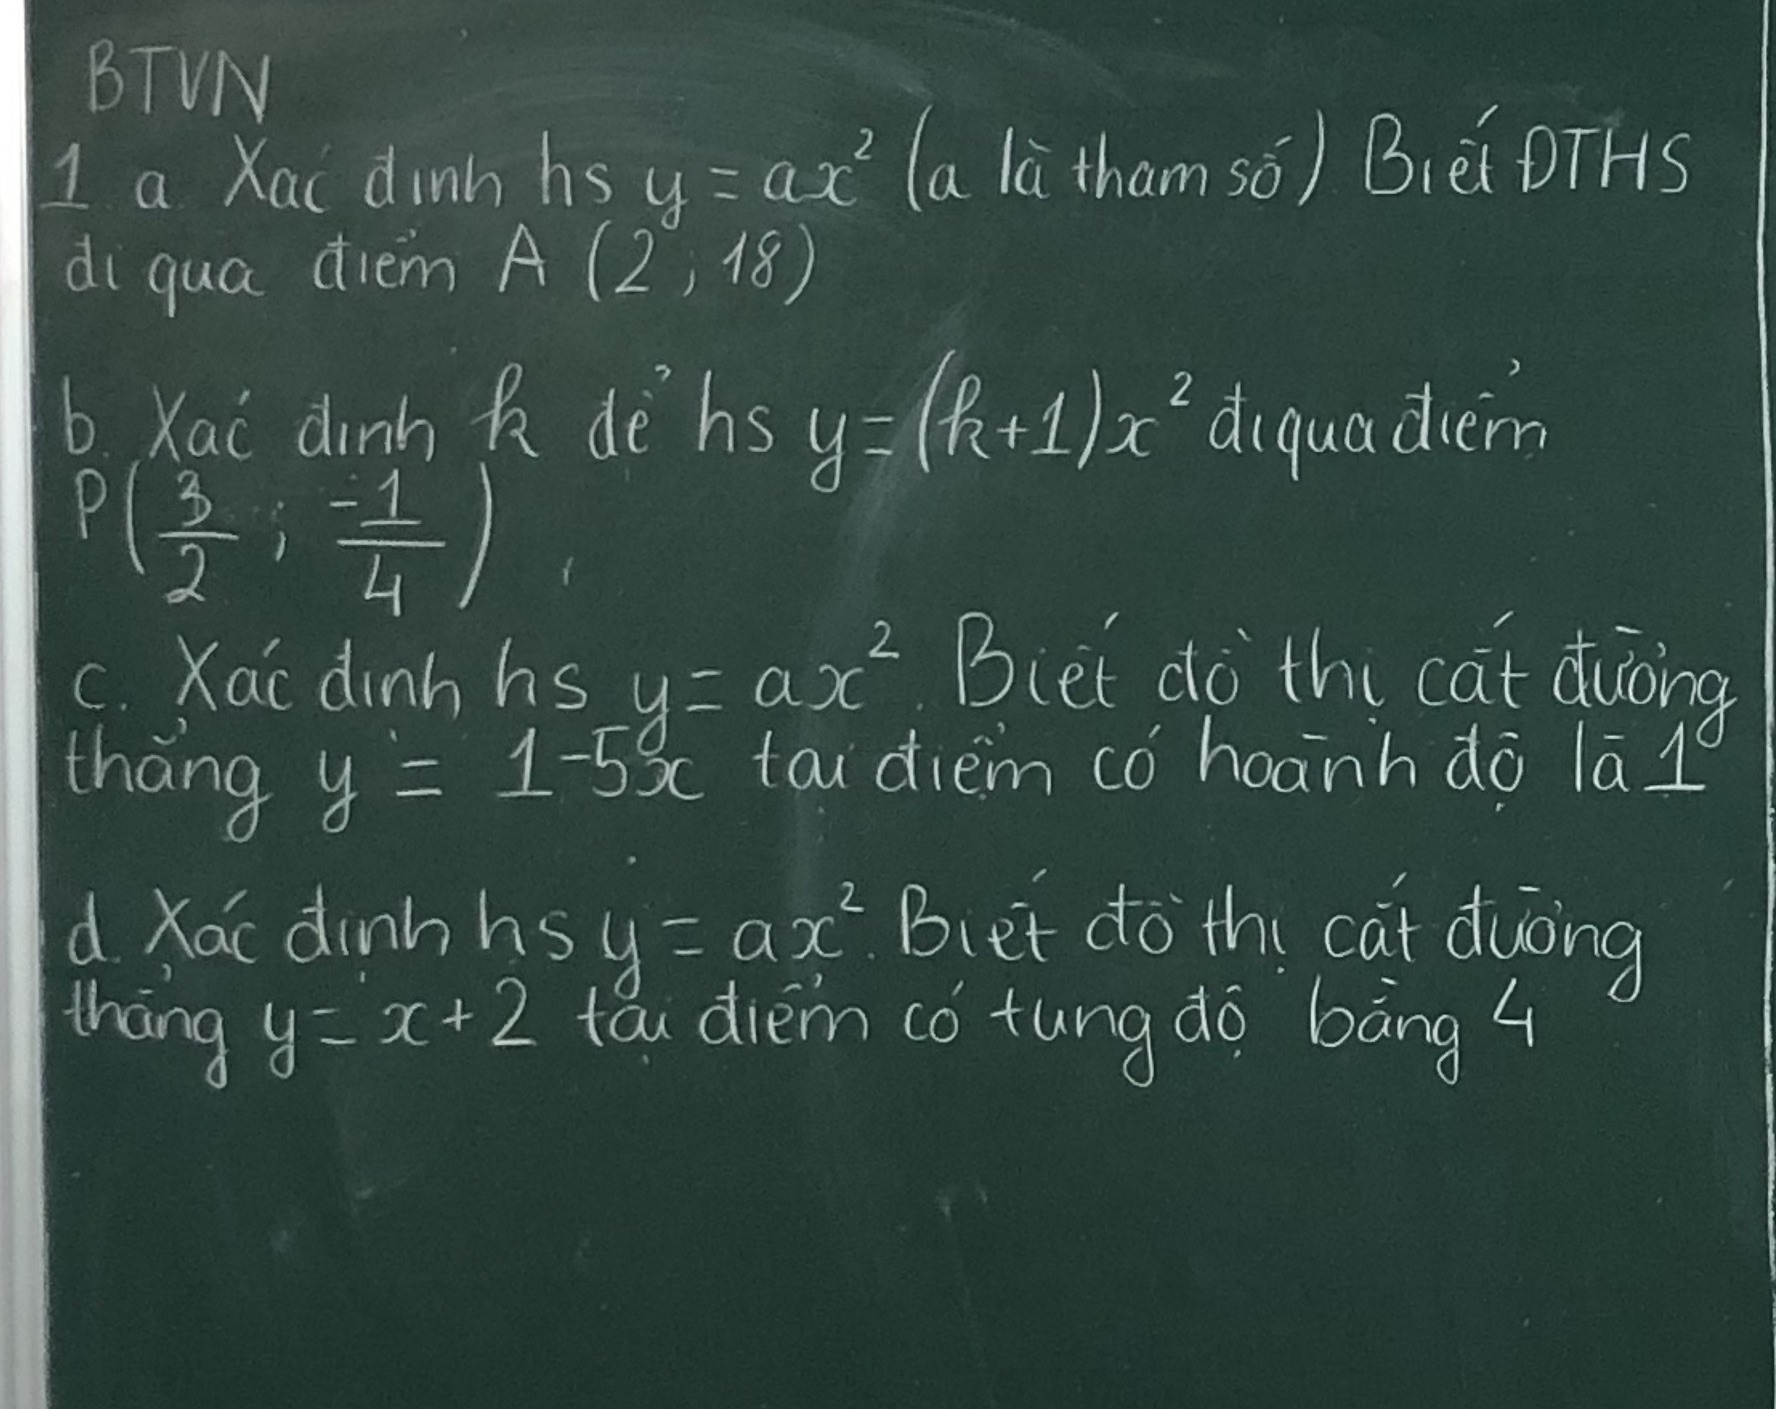 BTVN
1 a. Xác định hs y = ax² (a là tham số) Biết ĐTHS
đi qua điểm A (2; 18)
b. Xác định k để hs y = (k+1)x² đi qua điểm
P(3/2; -1/4).
c. Xác định hs y = ax². Biết đồ thị cắt đường
thẳng y = 1-5x tại điểm có hoành độ là 1
d. Xác định hs y = ax². Biết đồ thị cắt đường
thẳng y = x+2 tại điểm có tung độ bằng 4